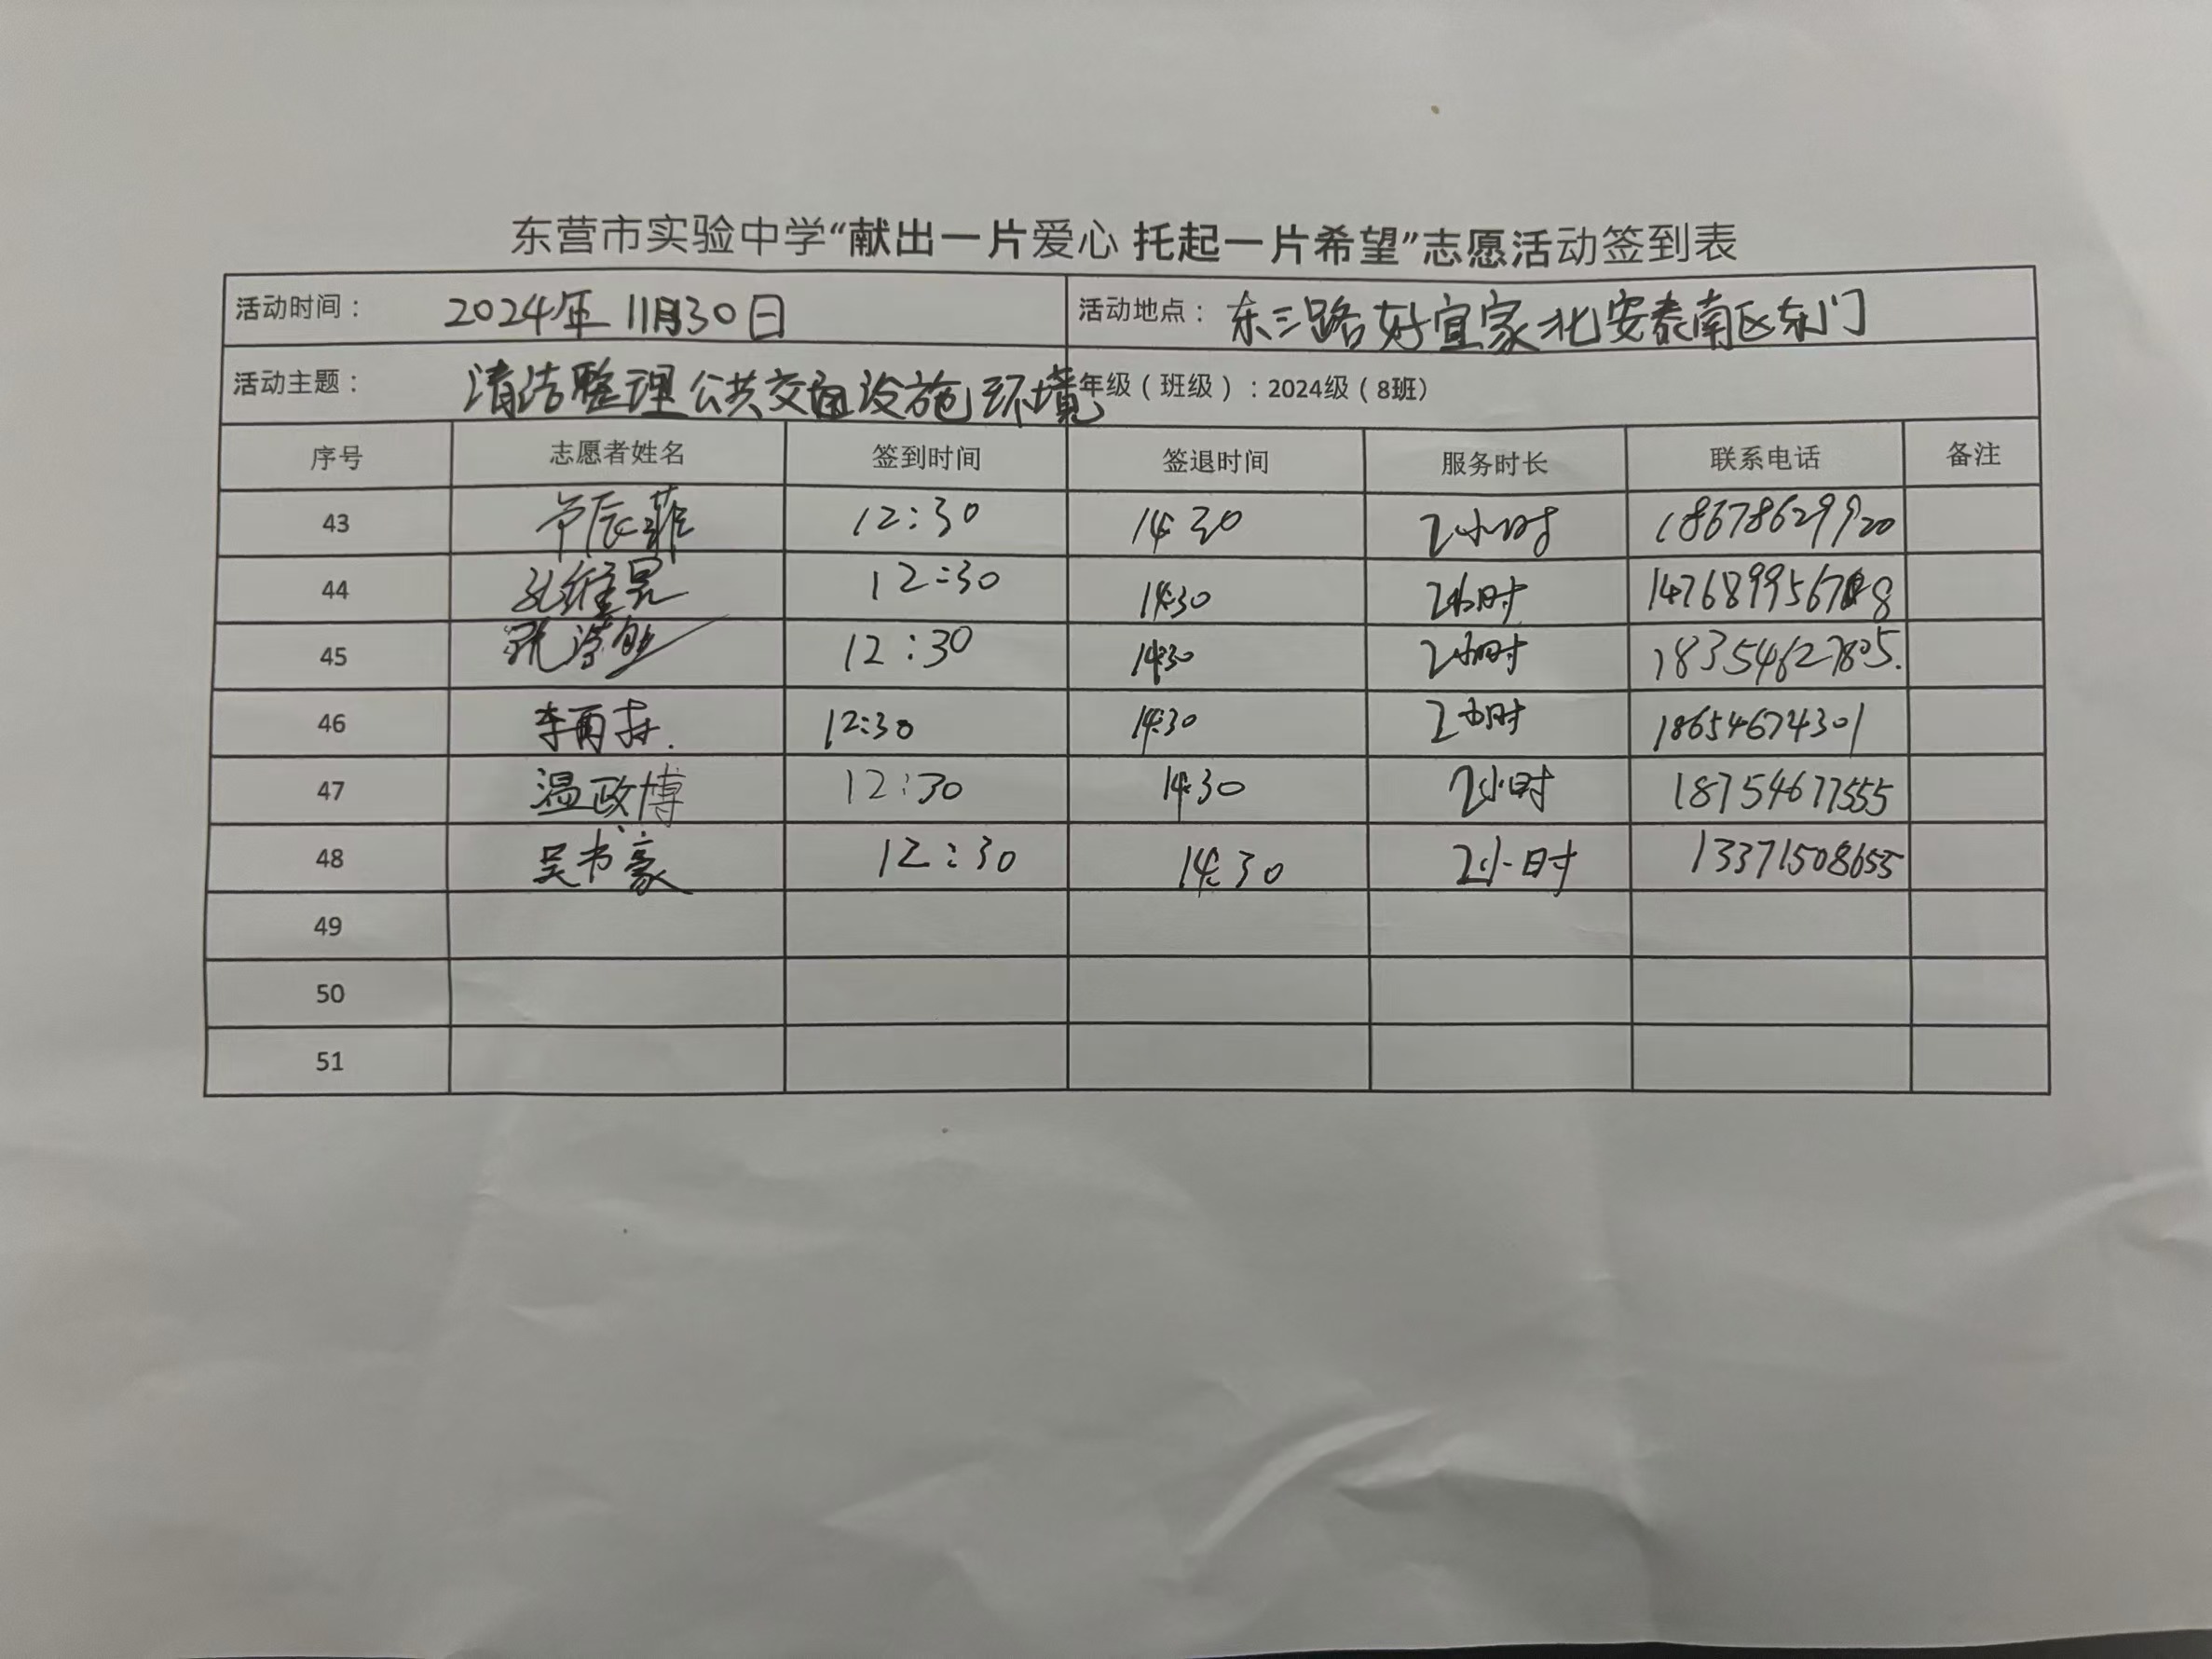 东营市实验中学“献出一片爱心 托起一片希望”志愿活动签到表
活动时间： 2024年11月30日 活动地点： 东三路好宜家北安泰南区东门
活动主题： 清洁整理公共交通设施环境 年级（班级）：2024级（8班）
序号 志愿者姓名 签到时间 签退时间 服务时长 联系电话 备注
43 辰菲 12:30 14:30 2小时 18678629920
44 12:30 14:30 2小时
45 12:30 14:30 2小时 18354627805.
46 李雨 12:30 14:30 2小时 18654674301
47 温政博 12:30 14:30 2小时 18754677555
48 吴书豪 12:30 14:30 2小时 13371508655
49
50
51